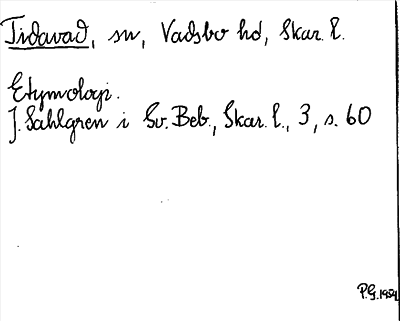 Tidavad, sn, Vadsbo hd, Skar. l.
Etymologi.
J. Sahlgren i Sv. Beb., Skar. l., 3, s. 60
P.G. 1954